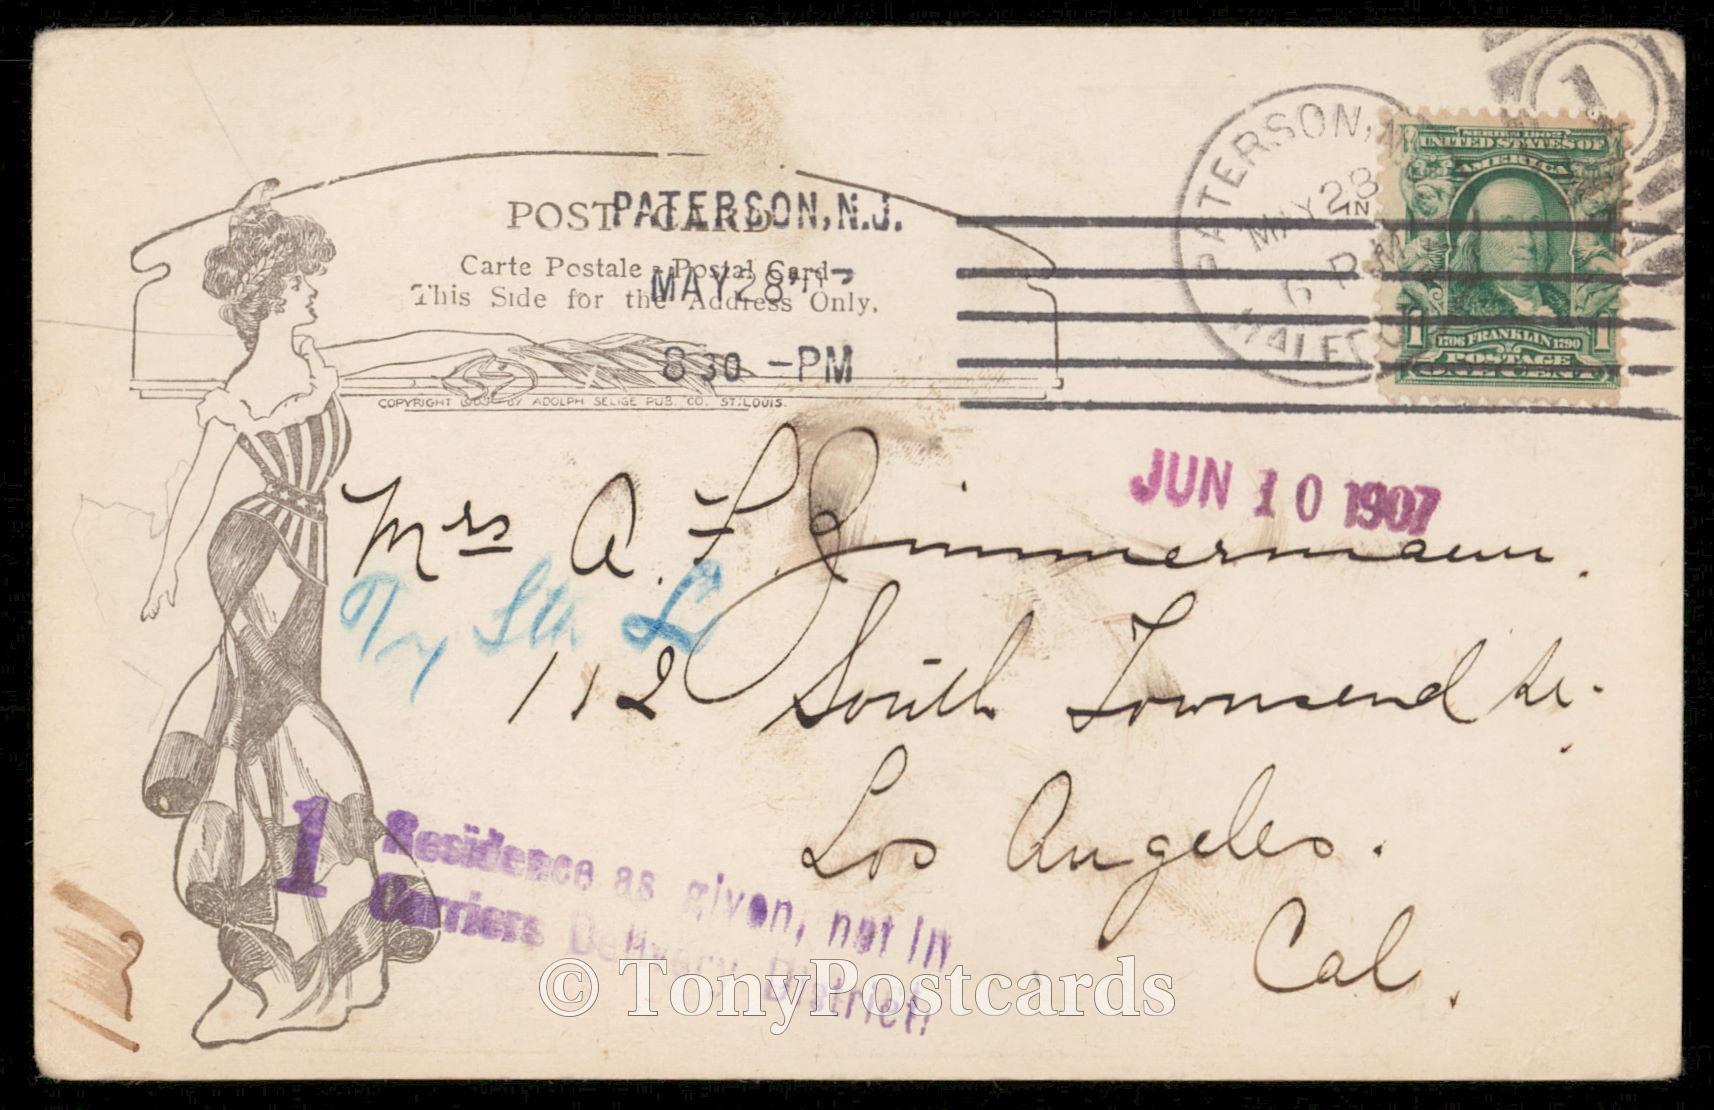 PATERSON, N.J.
MAY 28
6 P.M.
HALEDON
1
SERIES 1902
UNITED STATES OF
AMERICA
1706 FRANKLIN 1790
POSTAGE
ONE CENT
1 1
POST CARD
Carte Postale - Postal Card
This Side for the Address Only.
PATERSON, N.J.
MAY 28
8 30 - PM
COPYRIGHT BY ADOLPH SELIGE PUB. CO. ST. LOUIS.
JUN 10 1907
Mrs A. F. Zimmermann.
Try Sth L
112 South Townsend St.
Los Angeles.
Cal.
1 Residence as given, not in
Carriers Delivery District.
© TonyPostcards